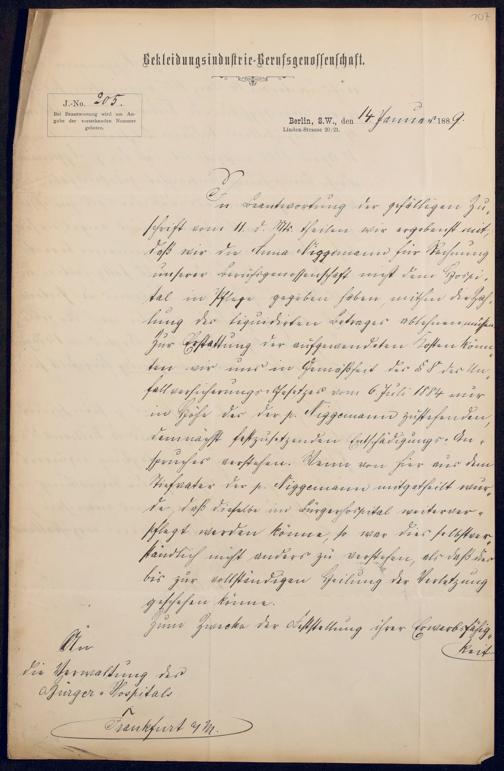 107
Bekleidungsindustrie-Berufsgenossenschaft.
J.-No. 205.
Bei Beantwortung wird um An-
gabe der vorstehenden Nummer
gebeten.
Berlin, S.W., den 14 Januar 1889.
Linden-Strasse 20/21.
In Beantwortung der gefälligen Zu-
schrift vom 11. d. Mts. theilen wir ergebenst mit,
daß wir die Anna Niggemann für Rechnung
unserer Berufsgenossenschaft nicht dem Hospi-
tal in Pflege gegeben haben, mithin die Zah-
lung des liquidirten Betrages ablehnen müssen.
Zur Erstattung der aufgewendeten Kosten könn-
ten wir uns in Gemäßheit des § 8 des Un-
fallversicherungs-Gesetzes vom 6. Juli 1884 nur
in Höhe des der p. Niggemann zustehenden,
demnächst festzusetzenden Entschädigungs-An-
spruches verstehen. Wenn von hier aus dem
Stiefvater der p. Niggemann mitgetheilt wur-
de, daß dieselbe im Bürgerhospital weiterver-
pflegt werden könne, so war dies selbstver-
ständlich nicht anders zu verstehen, als daß dies
bis zur vollständigen Heilung der Verletzung
geschehen könne.
Zum Zwecke der Feststellung ihrer Erwerbsfähig-
keit
An
die Verwaltung des
Bürger-Hospitals
Frankfurt a/M.